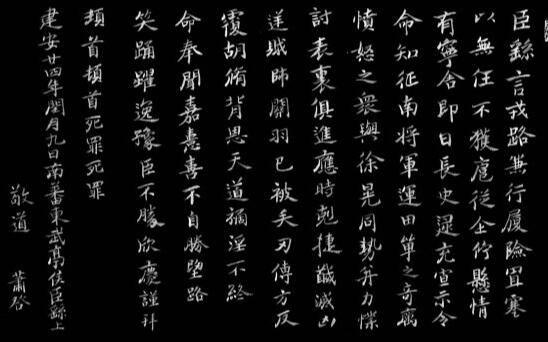 臣繇言戎路兼行履險冒寒
以無任不獲扈從企佇懸情
有寧舍即日長史逯充宣示令
命知征南將軍運田單之奇厲
憤怒之眾與徐晃同勢并力撲
討表裏俱進應時剋捷馘滅凶
逆賊帥關羽已被矢刃傅方反
覆胡脩背恩天道禍淫不終
命奉聞嘉憙喜不自勝望路
笑踊躍逸豫臣不勝欣慶謹拜
頓首頓首死罪死罪
建安廿四年閏月九日南蕃東武亭侯臣繇上
敬道 蕭啓